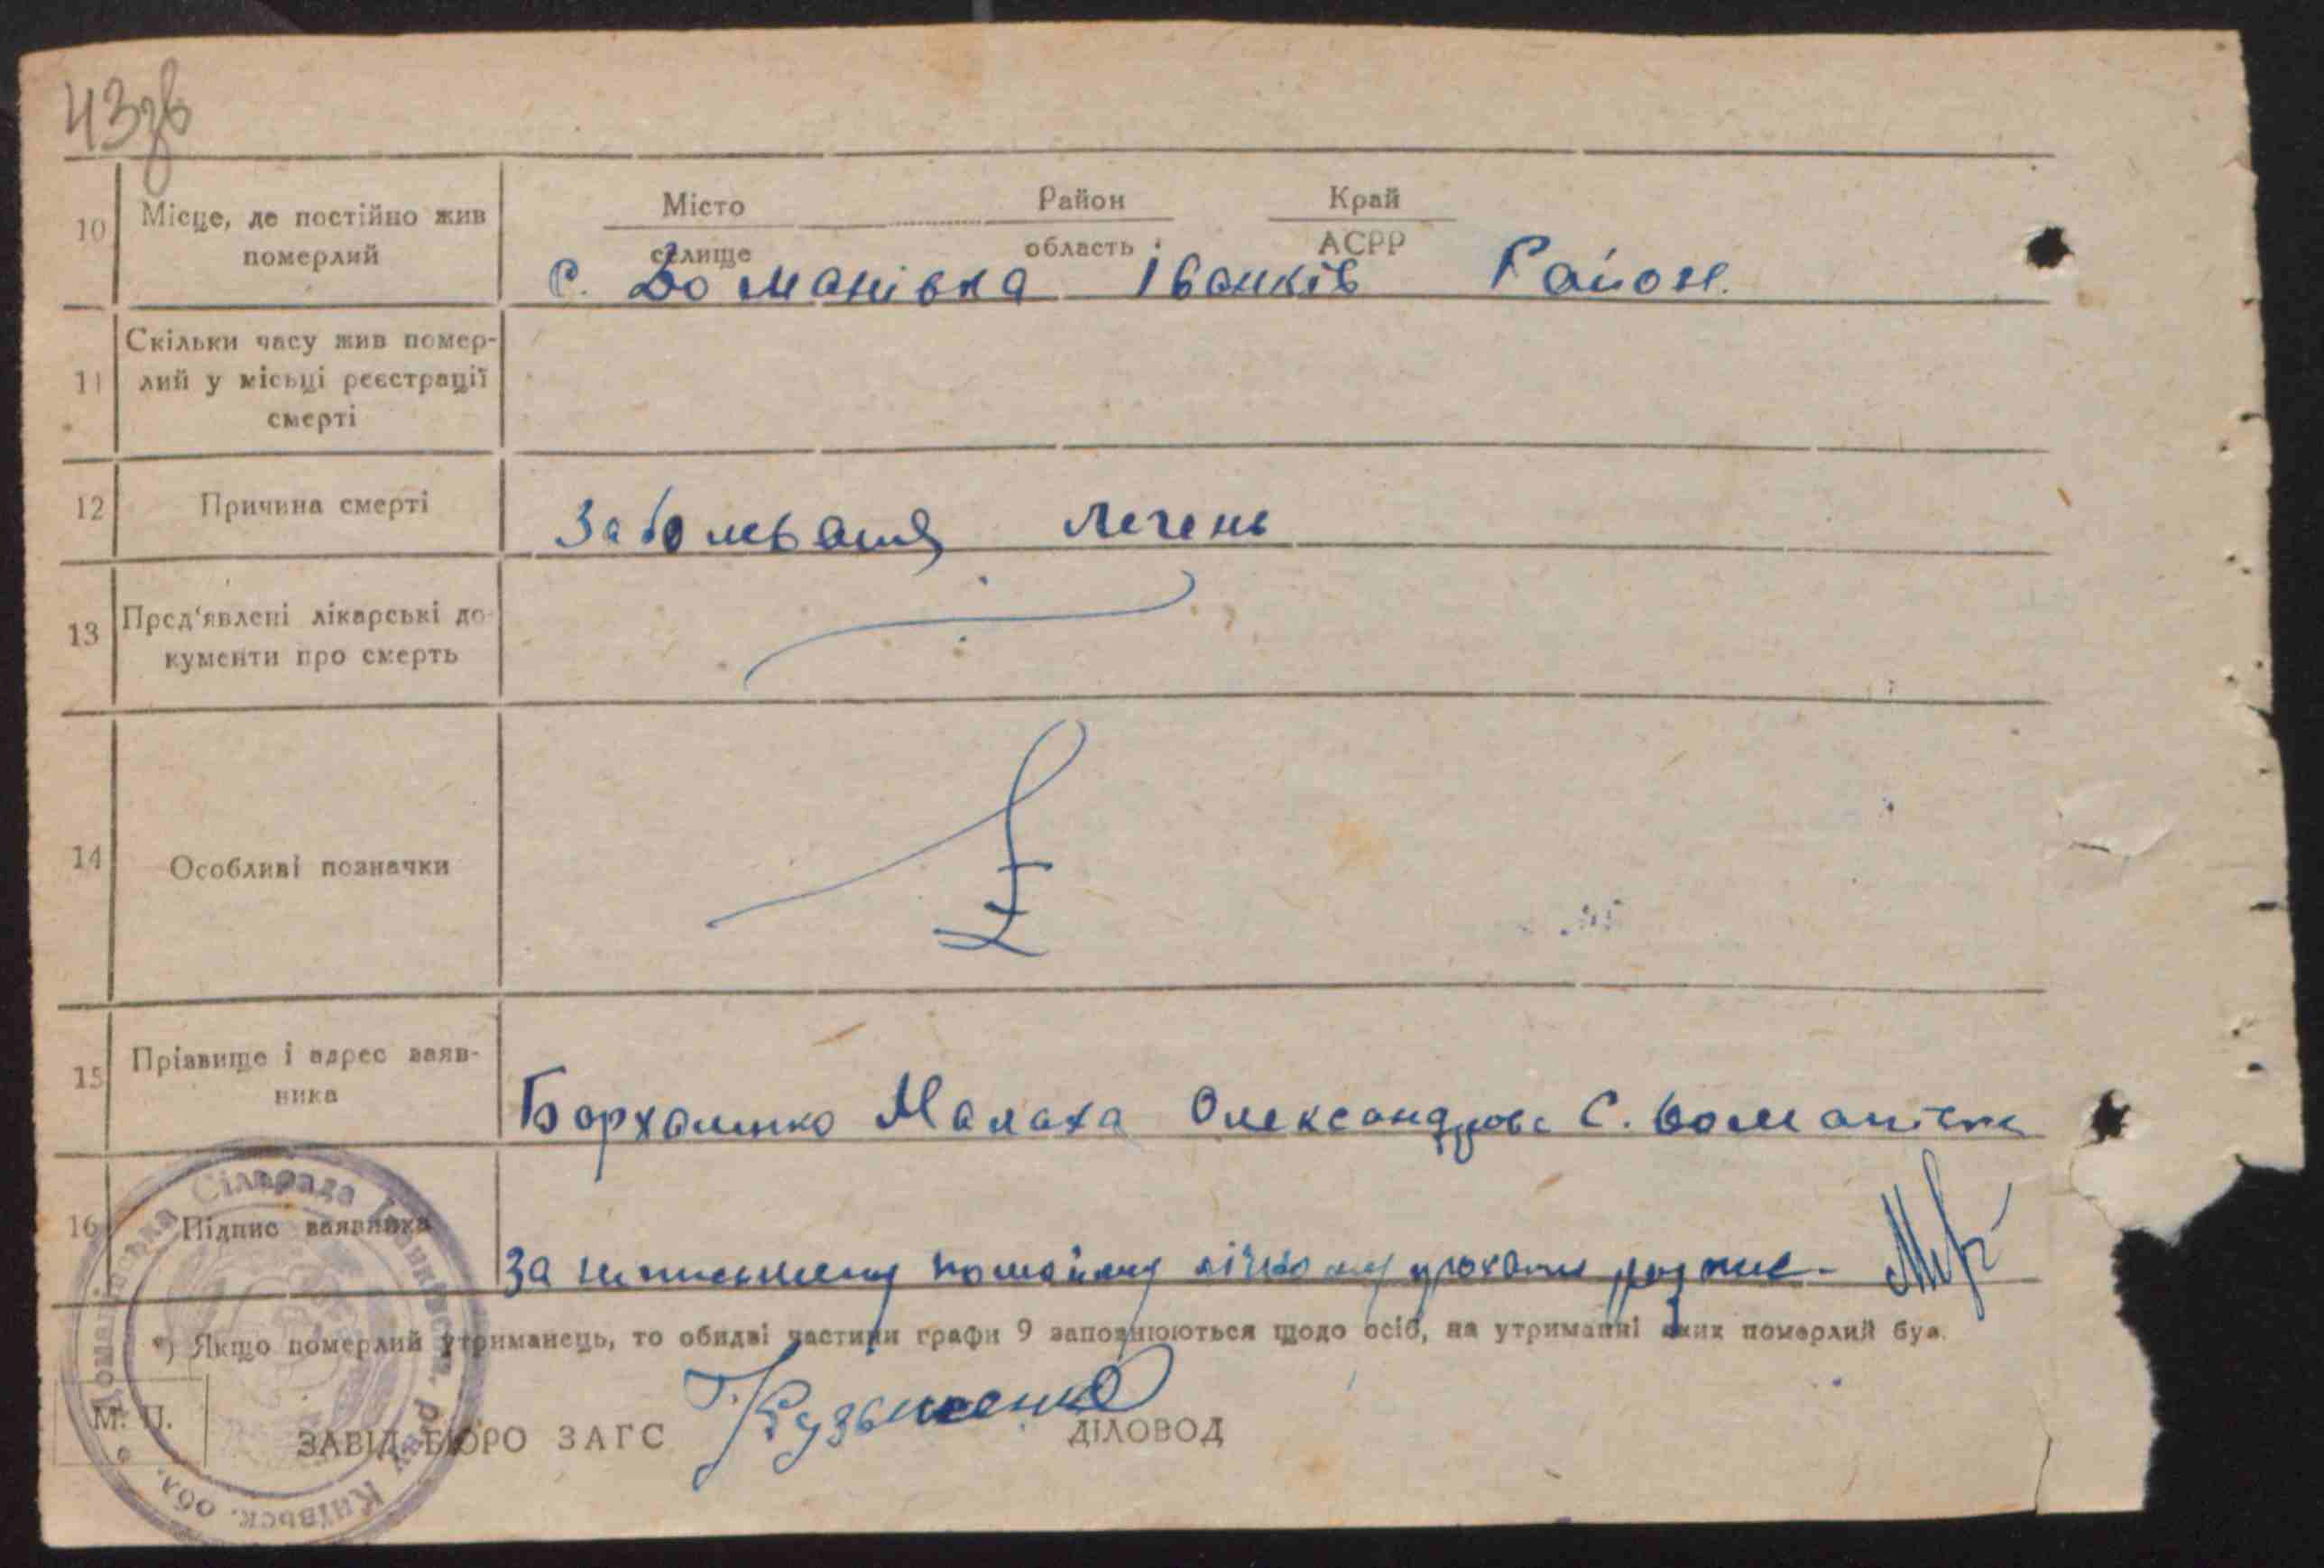 43зв
Місто Район Край
10 Місце, де постійно жив
померлий
селище область АСРР
с. Доманівка Іванків Район.
Скільки часу жив помер-
11 лий у місьці реєстрації
смерті
12 Причина смерті Заболеваня легень
13 Пред'явлені лікарські до-
кументи про смерть
14 Особливі позначки
15 Прізвище і адрес заяв-
ника
Бархаленко Малаха Олександрова С. Доманівка
16 Підпис заявника
За
*) Якщо померлий утриманець, то обидві частини графи 9 заповнюються щодо осіб, на утриманні яких померлий був.
М. П.
ЗАВІД БЮРО ЗАГС Кузьменко ДІЛОВОД
Доманівська Сільрада Іванківськ. р-ну Київськ. обл.